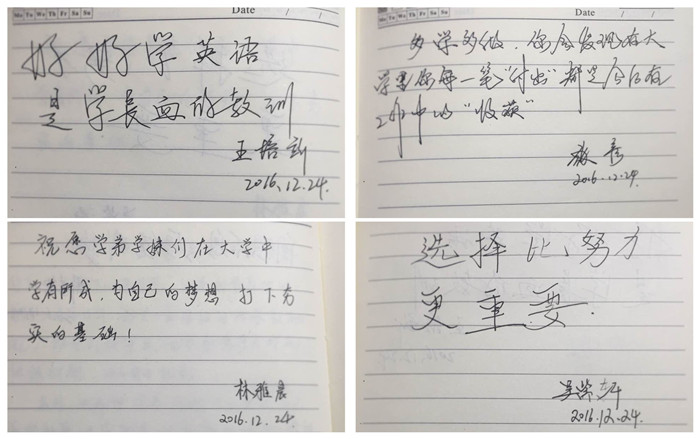 Mo Tu We Th Fr Sa Su
Date
好好学英语
是学长血的教训
王培
2016.12.24.
Date
多学多做，你会发现在大
学里你每一笔“付出”都是今后在
工作中的“收获”
2016.12.24.
祝愿学弟学妹们在大学中
学有所成，为自己的梦想 打下夯
实的基础！
林雅晨
2016.12.24
选择比努力
更重要.
2016.12.24.